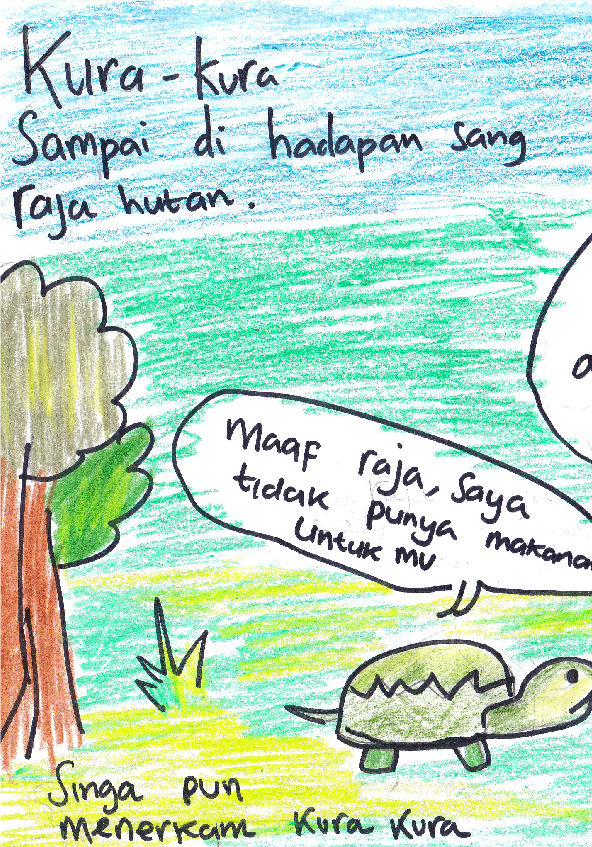 Kura - kura
Sampai di hadapan sang
raja hutan.
Maaf raja, Saya
tidak punya makanan
Untuk mu
Singa pun
menerkam kura kura